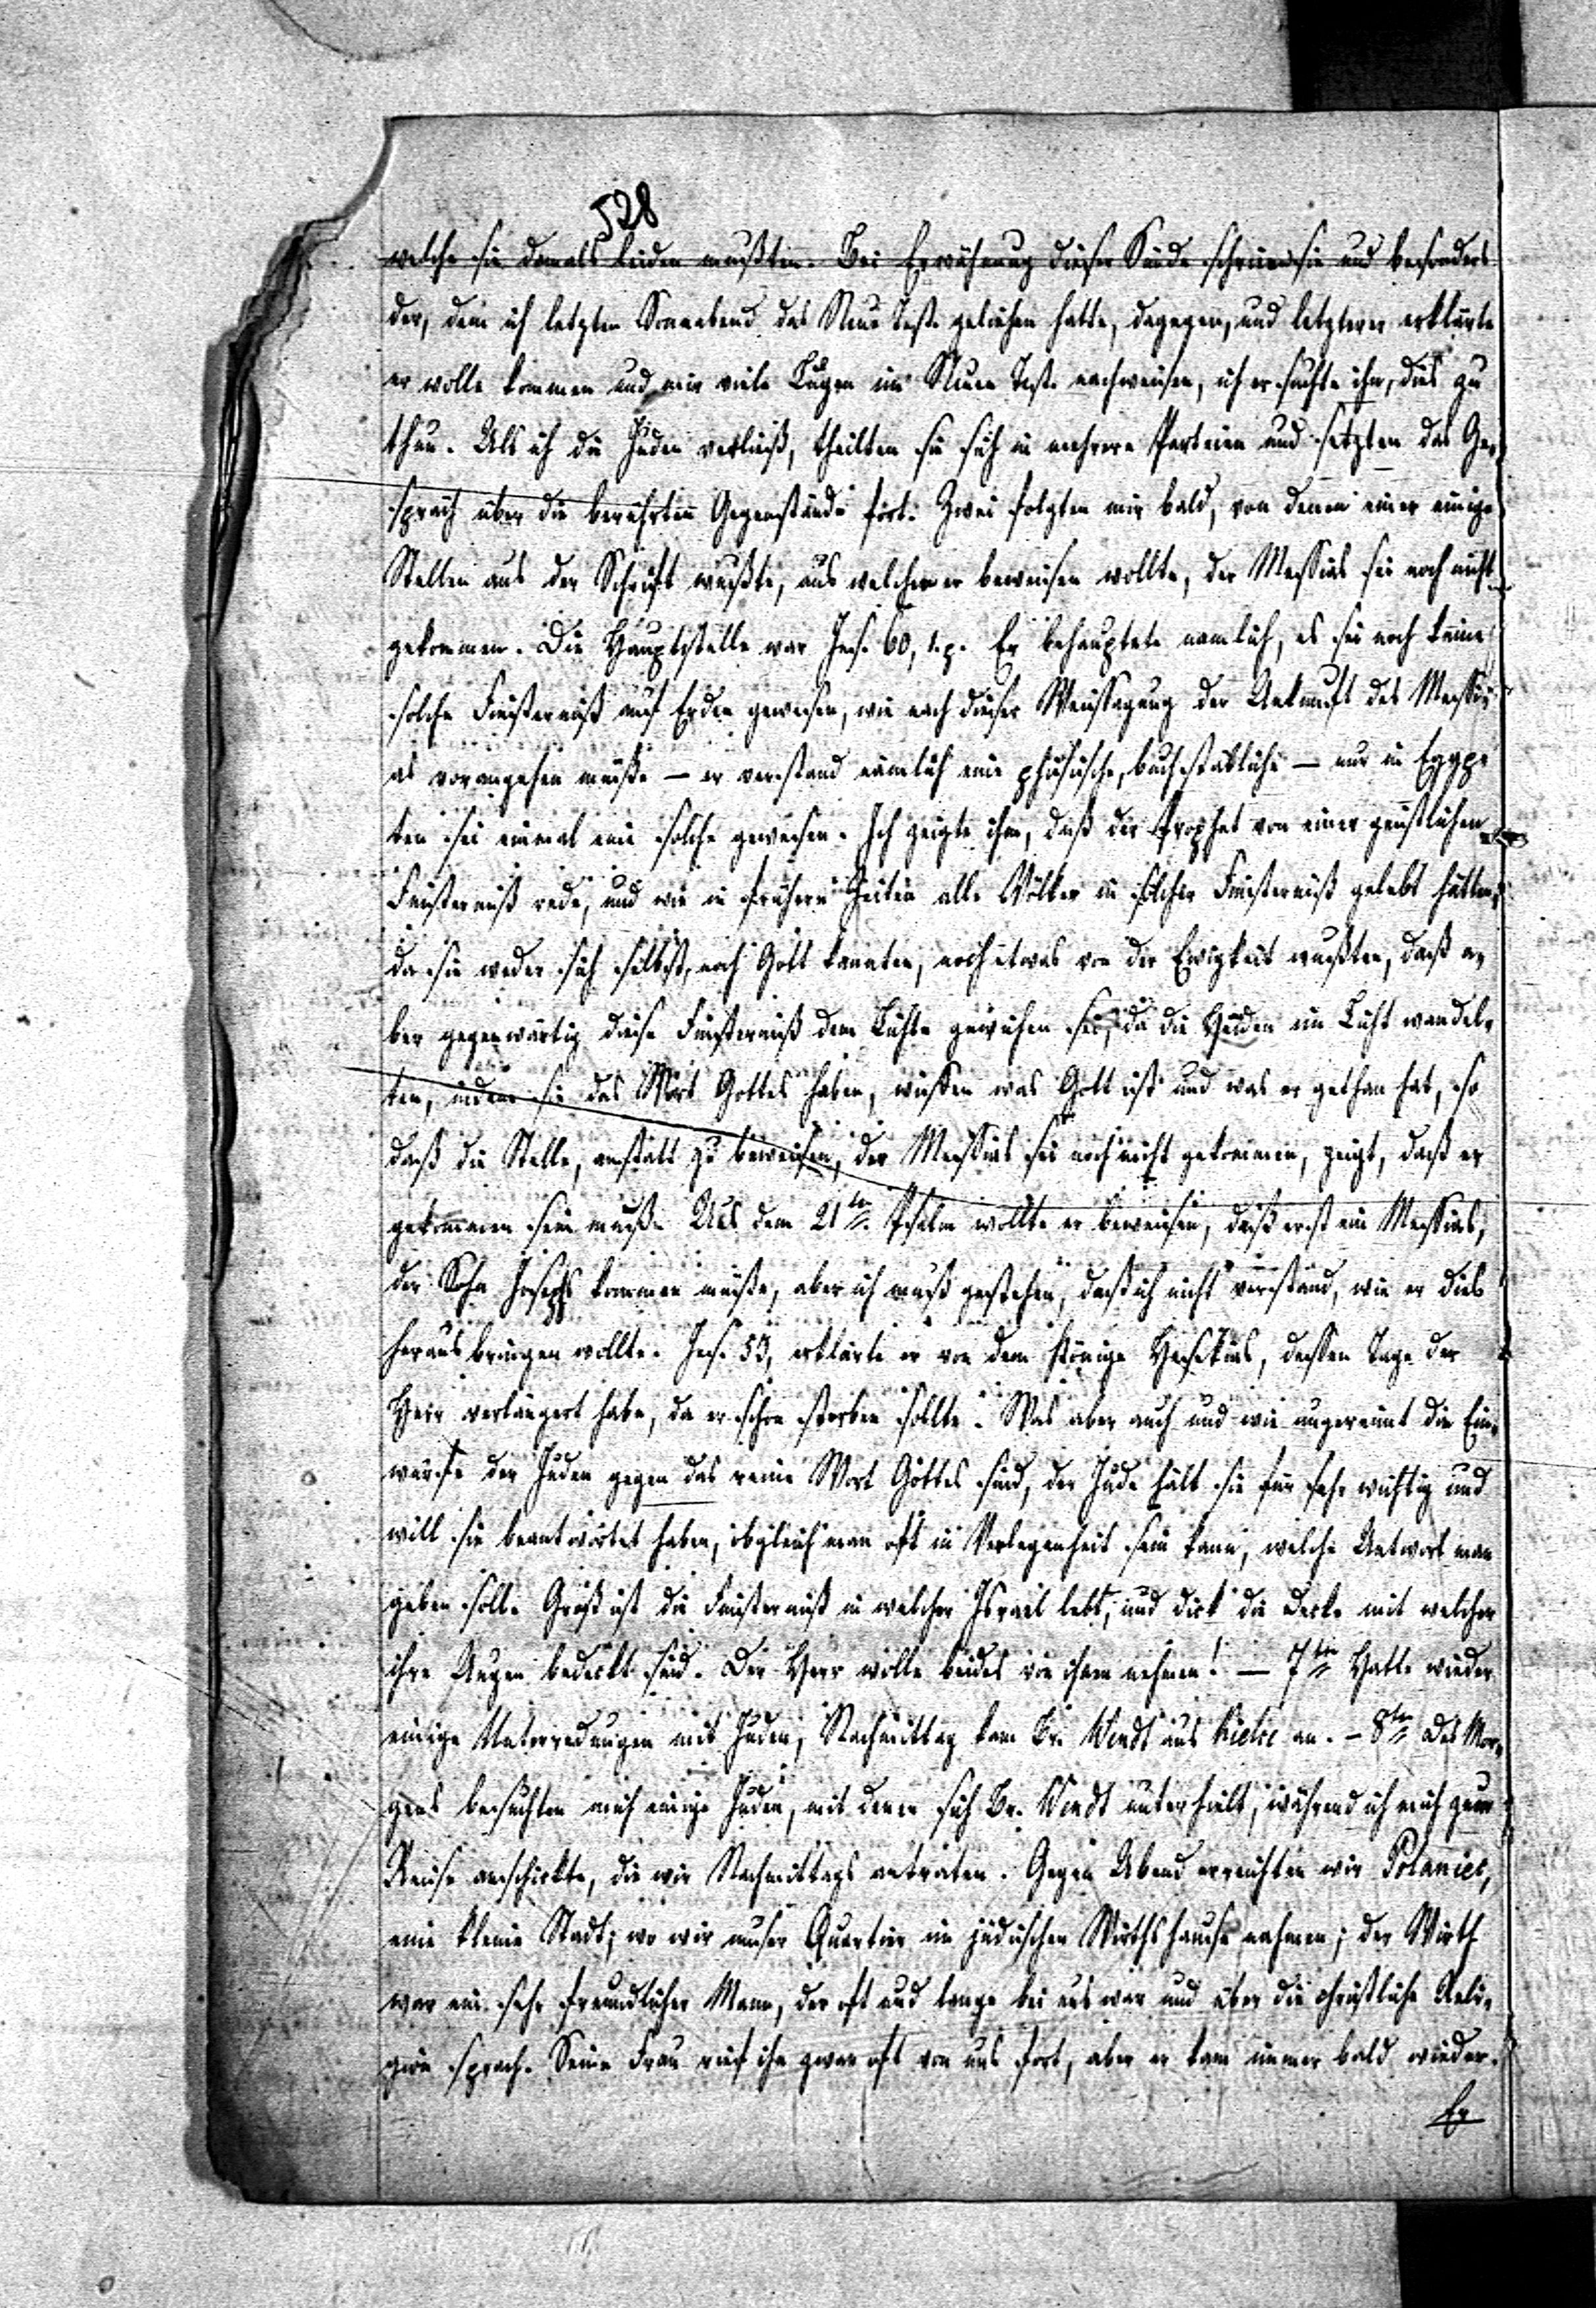 528
welche sie damals leiden mußten. Bei Erwähnung dieser Sünde schrieen sie und besonders
der, dem ich letzten Sonnabend das Neue Test. geliehen hatte, dagegen, und letzterer erklärte
er wolle kommen und mir viele Lügen im Neuen Test. nachweisen, ich ersuchte ihn, dies zu
thun. Als ich die Juden verließ, theilten sie sich in mehrere Parteien und setzten das Ge-
spräch über die berührten Gegenstände fort. Zwei folgten mir bald, von denen einer einige
Stellen aus der Schrift wußte, aus welchen er beweisen wollte, der Messias sei noch nicht
gekommen. Die Hauptstelle war Jes. 60, 1. Er behauptete nämlich, es sei noch keine
solche Finsterniß auf Erden gewesen, wie nach dieser Weissagung der Ankunft des Messi-
as vorangehen müsse – er verstand nämlich eine phisische, buchstäbliche – nur in Egyp-
ten sei einmal eine solche gewesen. Ich zeigte ihm, daß der Prophet von einer geistlichen
Finsterniß rede, und wie in frühern Zeiten alle Völker in solcher Finsterniß gelebt hätten,
da sie weder sich selbst, noch Gott kannten, noch etwas von der Ewigkeit wußten, daß a-
ber gegenwärtig diese Finsterniß dem Lichte gewichen sei, da die Heiden im Licht wandel-
ten, indem sie das Wort Gottes haben, wissen was Gott ist und was er gethan hat, so
daß die Stelle, anstatt zu beweisen, der Messias sei noch nicht gekommen, zeigt, daß er
gekommen sein muß. Aus dem 21ten Psalm wollte er beweisen, daß erst ein Messias,
der Sohn Josephs kommen müsse, aber ich muß gestehen, daß ich nicht verstand, wie er dies
herausbringen wollte. Jes. 53, erklärte er von dem Könige Hesekias, dessen Tage der
Herr verlängert habe, da er schon sterben sollte. Was aber auch und wie ungereimt die Ein-
würfe der Juden gegen das reine Wort Gottes sind, der Jude hält sie für sehr wichtig und
will sie beantwortet haben, obgleich man oft in Verlegenheit sein kann, welche Antwort man
geben solle. Groß ist die Finsterniß in welcher Israel lebt, und dick die Decke mit welcher
ihre Augen bedeckt sind. Der Herr wolle beides von ihnen nehmen! – 7ten Hatte wieder
einige Unterredungen mit Juden, Nachmittag kam Br. Wendt aus Kielce an. – 8ten Des Mor-
gens besuchten mich einige Juden, mit denen sich Br. Wendt unterhielt, während ich mich zur
Reise anschickte, die wir Nachmittags antraten. Gegen Abend erreichten wir Polaniec,
eine kleine Stadt, wo wir unser Quartier im jüdischen Wirthshause nahmen; der Wirth
war ein sehr freundlicher Mann, der oft und lange bei uns war und über die christliche Reli-
gion sprach. Seine Frau rief ihn zwar oft von uns fort, aber er kam immer bald wieder.
Er